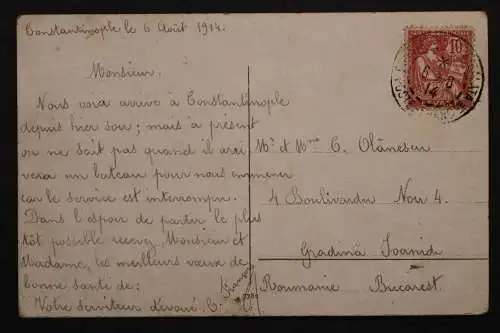 Constantinople le 6 Août 1914.
Monsieur.
Nous voici arrivé à Constantinople
depuis hier soir; mais à présent
on ne sait pas quand il arri
vera un bateau pour nous emmener
car le service est interrompu.
Dans l'espoir de partir le plus
tôt possible recevez, Monsieur et
Madame, les meilleurs vœux de
bonne santé de:
Votre serviteur dévoué, C.
Mr et Mme C. Olănescu
4 Boulivardu Nou 4.
Gradina Ioanid
Roumanie Bucarest.
10